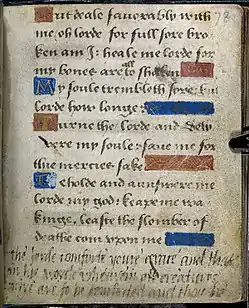 But deale favorably with
me, oh lorde for full sore bro-
ken am I: heale me lorde for
my bones are all to shaken
My soule trembleth sore: but
lorde how longe:
Turne the lorde and dely-
vere my soule: save me for
thie mercies sake
Beholde and aunswere me
lorde my god: keape me wa-
kinge, leaste the slomber of
deathe com vpon me
the lorde youre grace and that
in his worde whearein all creatures
lyve are to be
78